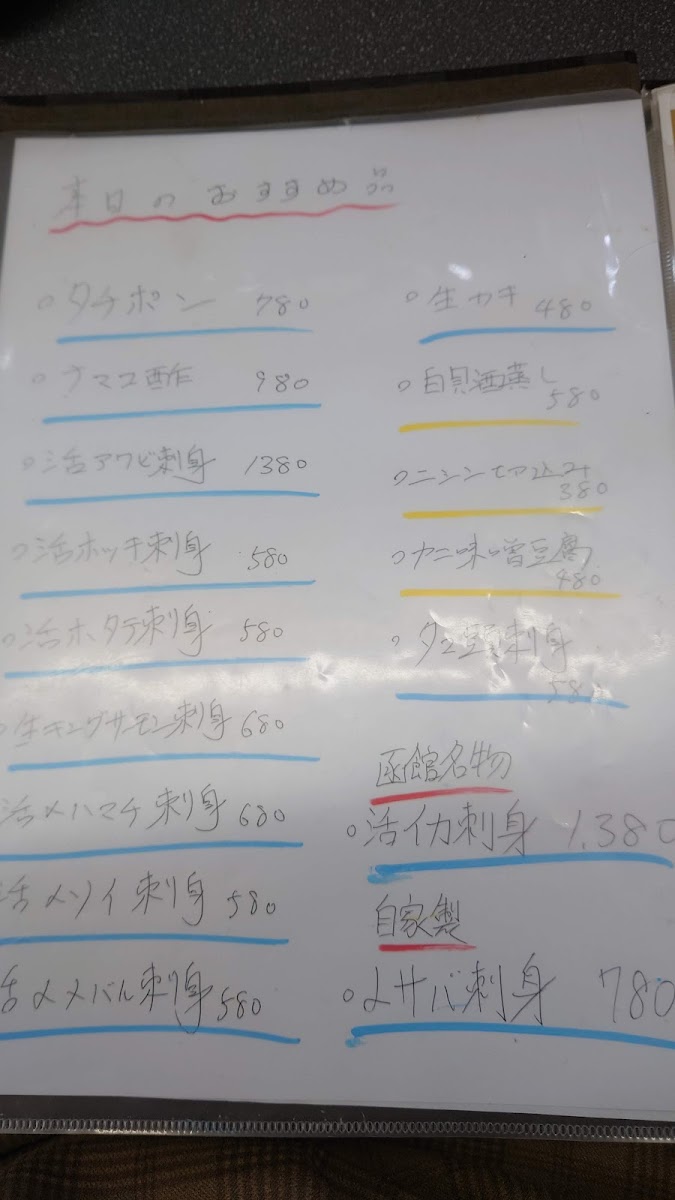 本日のおすすめ品
○タチポン 780
○ナマコ酢 980
○活アワビ刺身 1380
○活ホッキ刺身 580
○活ホタテ刺身 580
○生キングサーモン刺身 680
活〆ハマチ刺身 680
活〆ソイ刺身 580
活〆メバル刺身 580
○生カキ 480
○白貝酒蒸し
580
○ニシン切込み
380
○カニ味噌豆腐
480
○タコ頭刺身
580
函館名物
○活イカ刺身 1,380
自家製
○〆サバ刺身 780